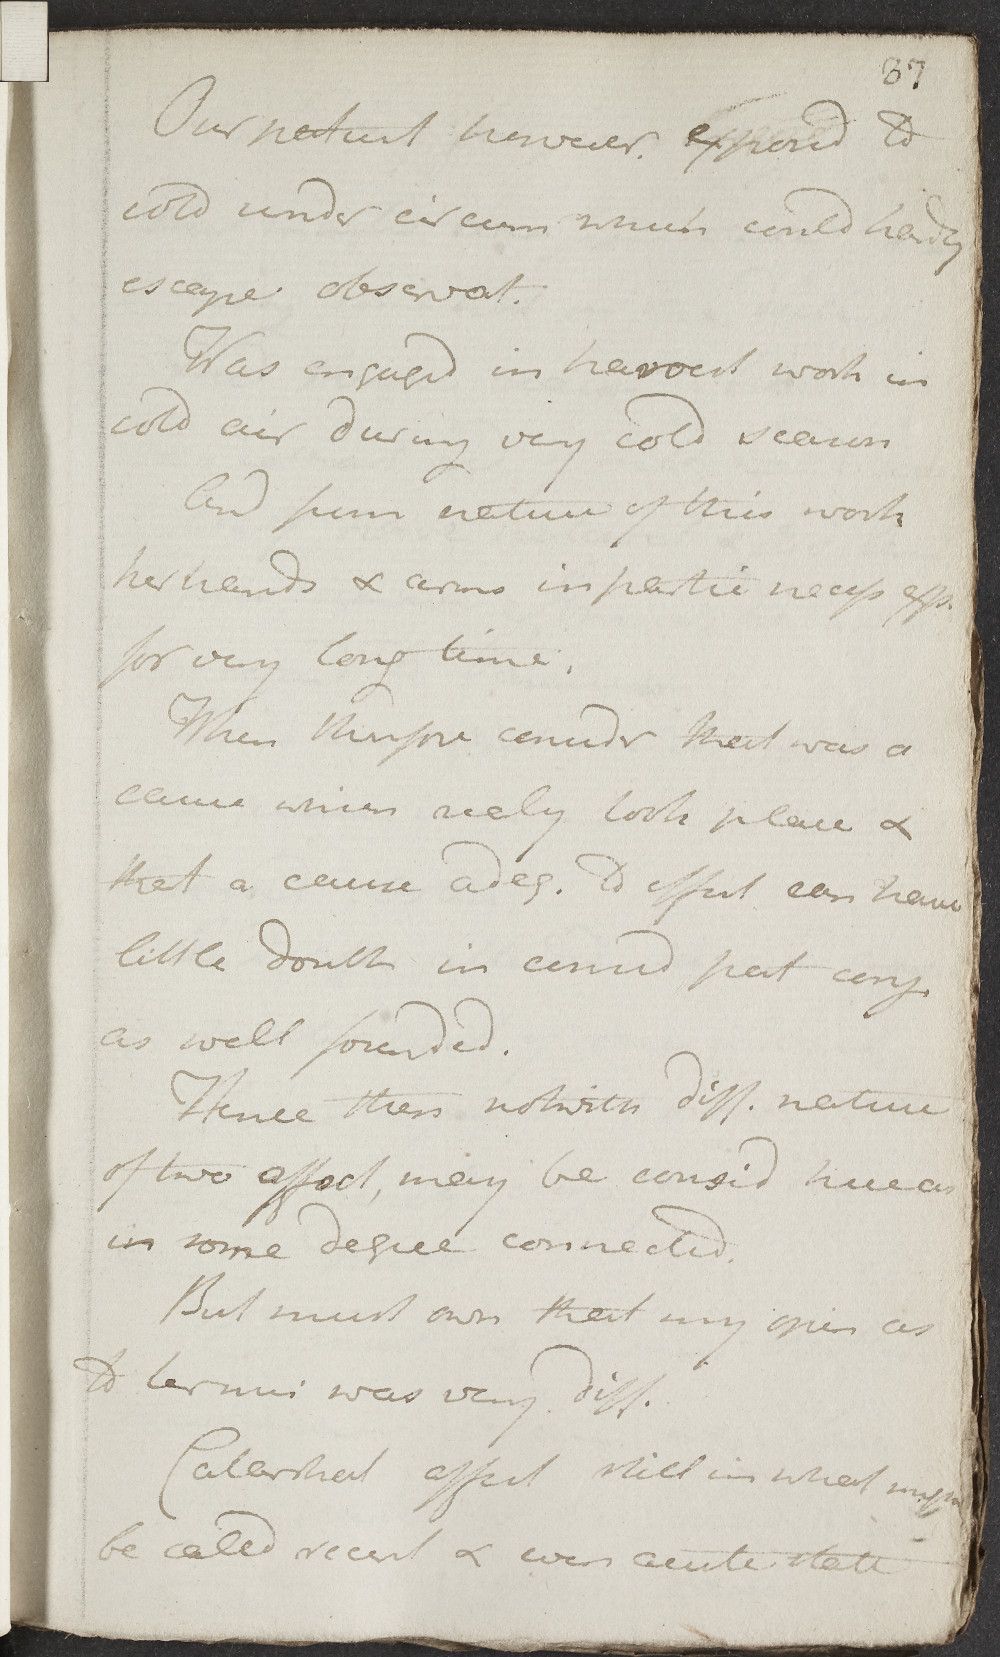 37
Our patient however. exposid to
cold under circum which could hardly
escape observat.
Was engaged in harvest work in
cold air during very cold season
And from nature of this work
her hands & arms in partic necess exp.
for very long time.
When therefore consider that was a
cause which realy took place &
that a cause adeq. to effect can have
little doubt in consid pat conj.
as well founded.
Hence then notwith diff. nature
of two affect, may be consid here as
in some degree connected.
But must own that my opin as
to termi was very diff.
Catarrhal affect still in what might
be called recent & even acute state